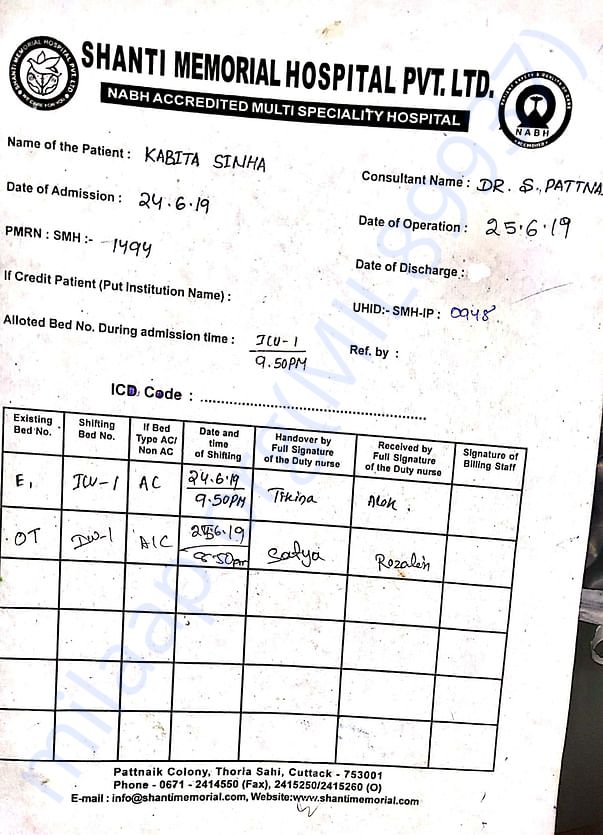 SHANTI MEMORIAL HOSPITAL PVT. LTD.
NABH ACCREDITED MULTI SPECIALITY HOSPITAL
SHANTI MEMORIAL HOSPITAL PVT. LTD.
WE CARE FOR YOU
NABH
ACCREDITED
Name of the Patient : KABITA SINHA
Consultant Name : DR. S. PATTNA
Date of Admission : 24.6.19
Date of Operation : 25.6.19
PMRN : SMH :- 1494
Date of Discharge :
If Credit Patient (Put Institution Name) :
UHID:- SMH-IP : 0948
Alloted Bed No. During admission time : ICU-1
9.50PM
Ref. by :
ICD Code :
Existing Bed No. Shifting Bed No. If Bed Type AC/ Non AC Date and time of Shifting Handover by Full Signature of the Duty nurse Received by Full Signature of the Duty nurse Signature of Billing Staff
E1 ICU-1 AC 24.6.19 9.50PM Alok.
OT A/C 25.6.19 8.50pm Satya Rozalin
Pattnaik Colony, Thoria Sahi, Cuttack - 753001
Phone - 0671 - 2414550 (Fax), 2415250/2415260 (O)
E-mail : info@shantimemorial.com, Website:www.shantimemorial.com